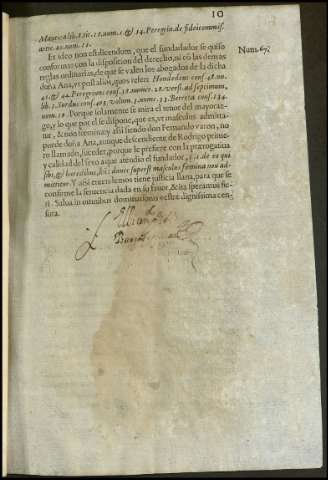 10
Num. 67.
Mantic. lib. 3. tit. 12. num. 1. & 14. Peregin. de fideicommiss.
artic. 20. num. 12.
Et ideo non est dicendum, que el fundador se quiso
conformar con la disposicion del derecho, ni cō las demas
reglas ordinarias, de que se valen los abogados de la dicha
doña Ana, vt post alios, quos refert Hondedeus conf. 48. nu.
41. & 44. Peregrinus conf. 19. numer. 28. versi. ad septimum,
lib. 3. Surdus conf. 403. volum. 3. num. 33. Beretta conf. 134.
num. 10. Porque solamente se mira el señor del mayoraz-
go, y lo que por el se dispone, que es, vt masculus admitta-
tur, & non femina; y assi siendo don Fernando varon, no
puede doña Ana, aunque descendiente de Rodrigo prime-
ro llamado, suceder, porque le prefiere con la prerrogatiua
y calidad del sexo a que atendio el fundador,
masculus femina non ad-
mittetur. Y assi en terminos tiene justicia llana, para que se
confirme la sentencia dada en su fauor, & ita speramus fie-
ri. Salua in omnibus dominationis vestræ dignissima cen-
sura.